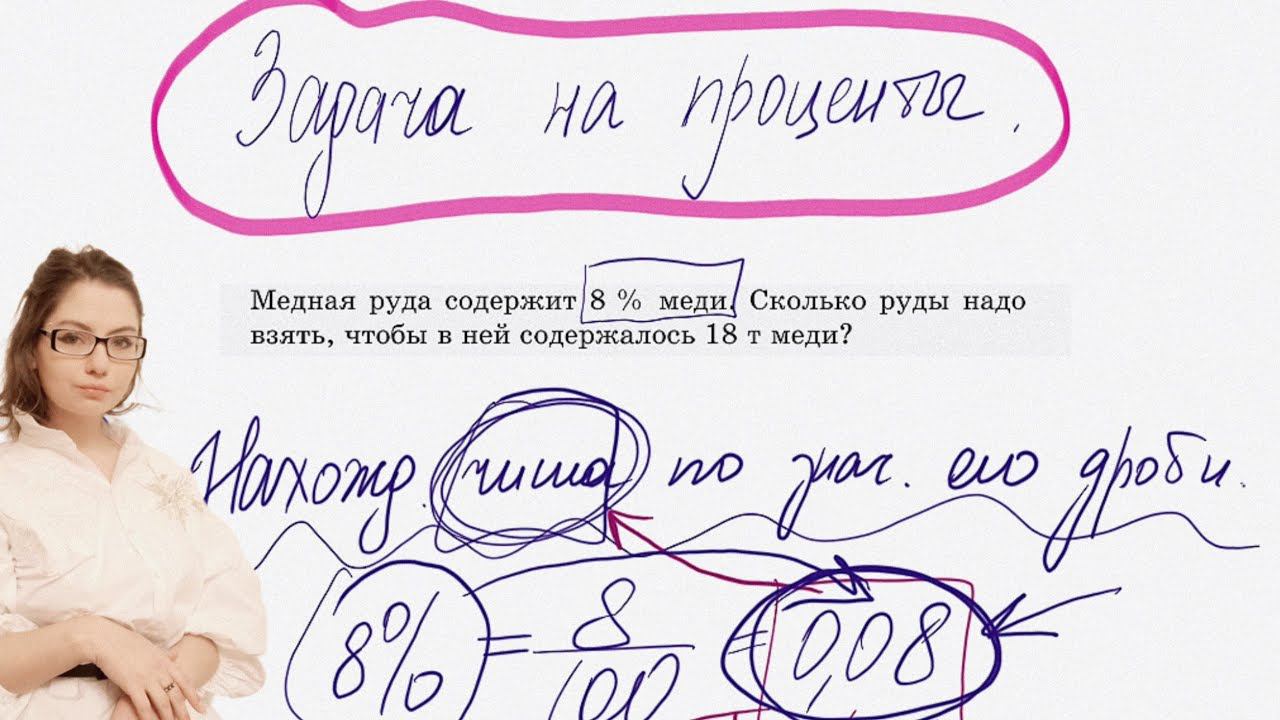 Задача на проценты.
Медная руда содержит 8 % меди. Сколько руды надо
взять, чтобы в ней содержалось 18 т меди?
Нахожд. числа по знач. его дроби.
8% = 8/100 = 0,08